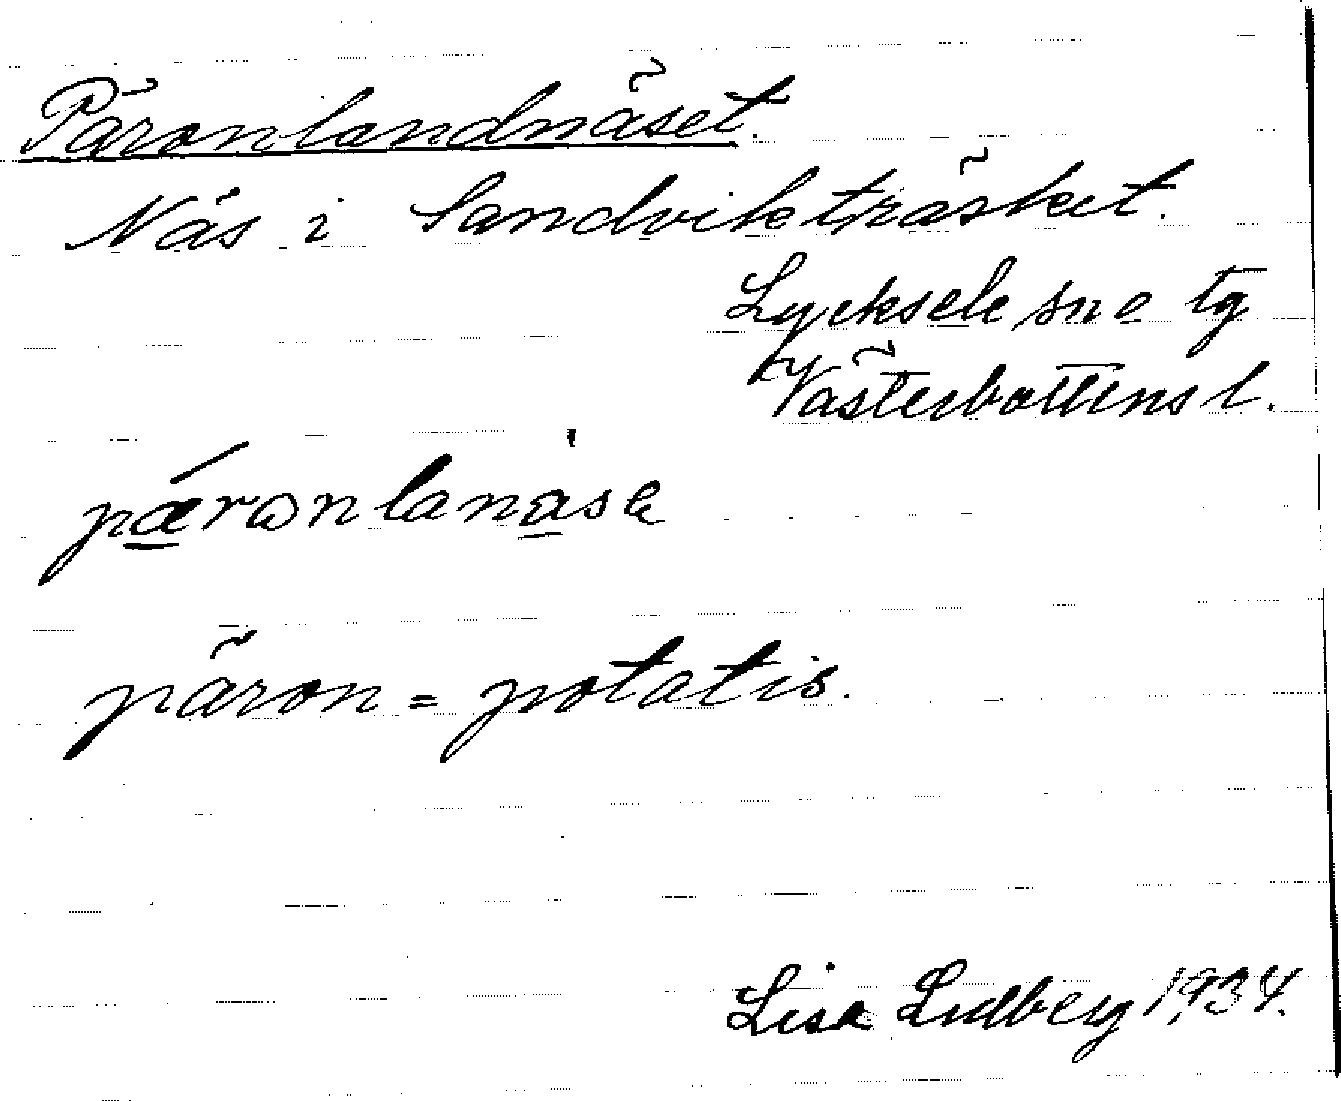 Päronlandnäset.
Näs i Sandvikträsket.
Lycksele sn o tg
Västerbottens l.
pǽronlanäse
päron = potatis.
Lisa Lidberg 1934.